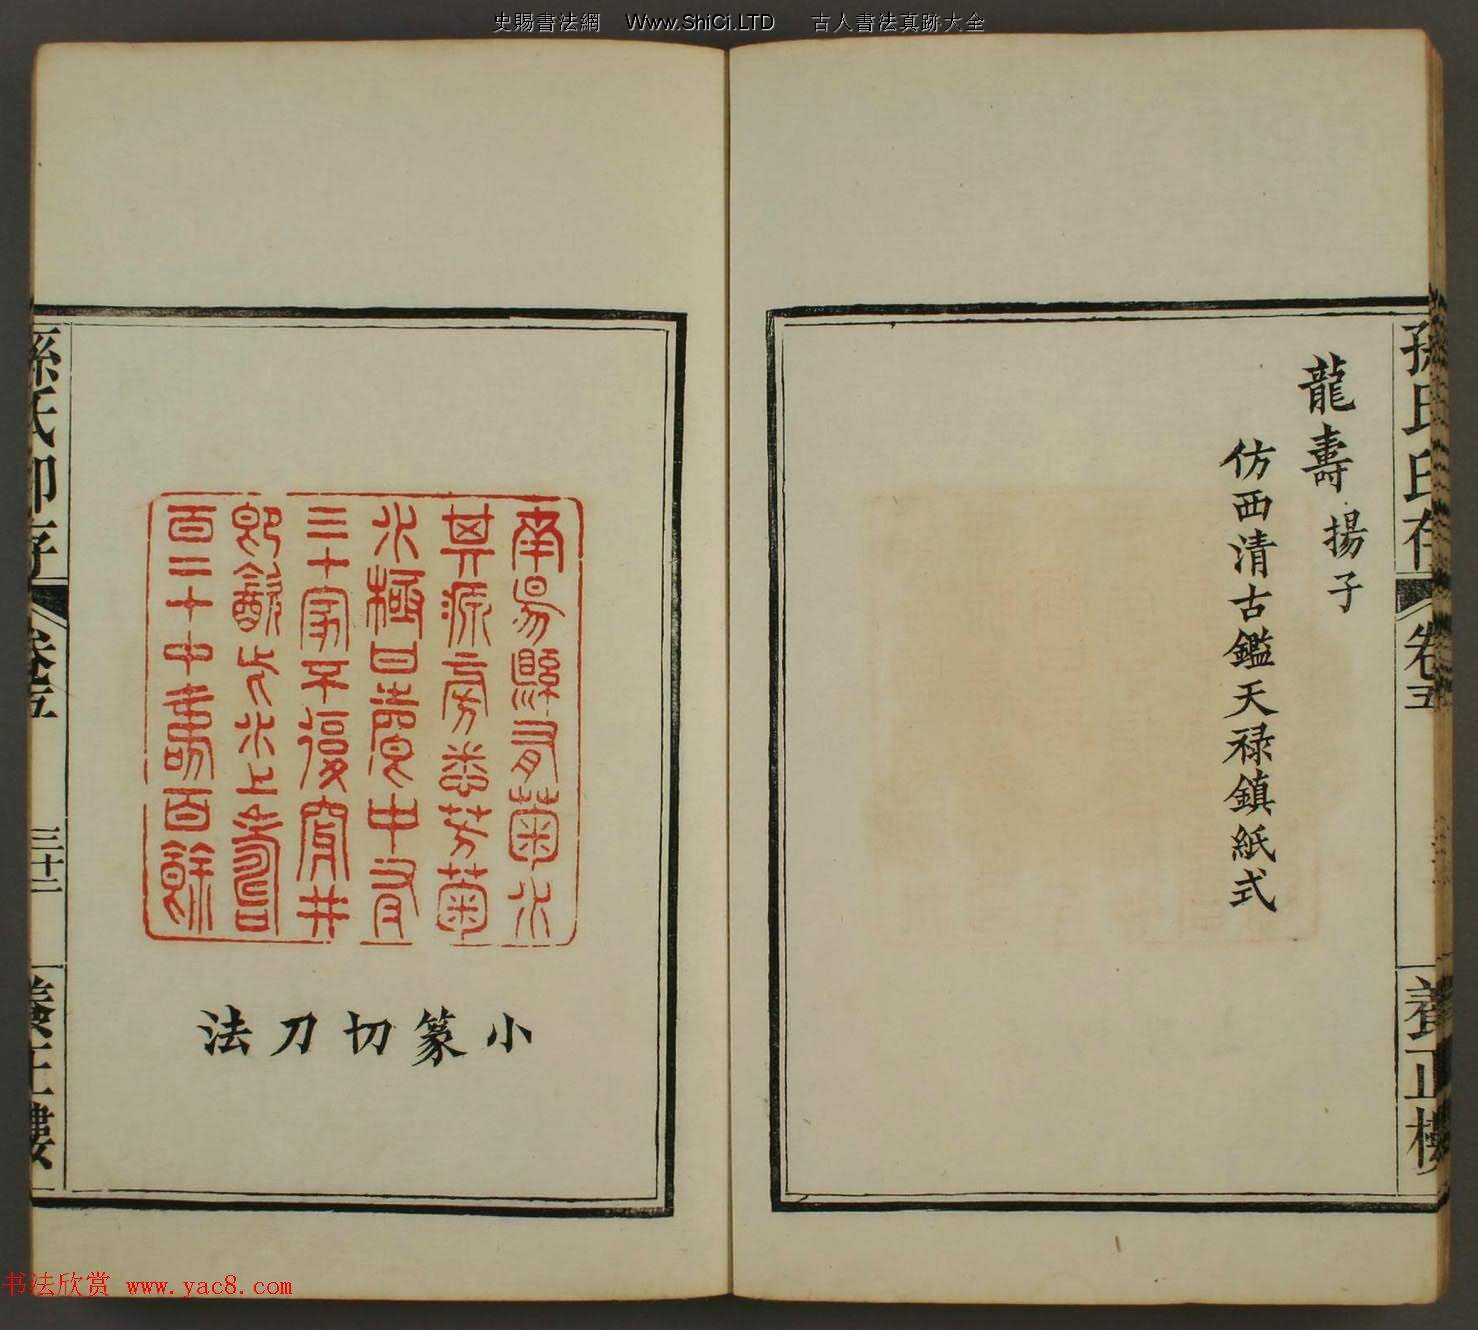 史賜書法網 Www.ShiCi.LTD 古人書法真跡大全
孫氏印存 卷五 養正樓
龍壽 揚子
仿西清古鑑天禄鎮紙式
南陽縣有菊水
其源旁悉芳菊
水極甘馨中有
三十家不復穿井
即飲此水上壽
百二十中壽百餘
小篆切刀法
孫氏印存 卷五 三十二 養正樓
书法欣赏 www.yac8.com